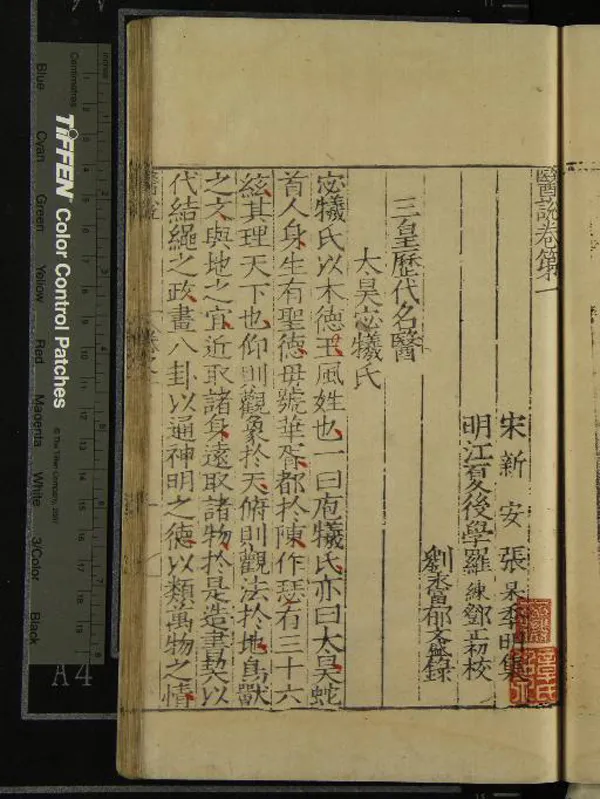 醫說卷第一
宋新安張杲季明集
明江夏後學羅練鄧正初校
劉 郁文 錄
三皇歷代名醫
太昊宓犧氏
宓犧氏以木德王風姓也一曰庖犧氏亦曰太昊蛇
首人身生有聖德母號華胥都於陳作瑟有三十六
絃其理天下也仰則觀象於天俯則觀法於地鳥獸
之文與地之宜近取諸身遠取諸物於是造書契以
代結繩之政畫八卦以通神明之德以類萬物之情
醫說
TIFFEN Color Control Patches
© The Tiffen Company, 2007
Centimetres
Inches
Blue
Cyan
Green
Yellow
Red
Magenta
White
3/Color
Black
A4